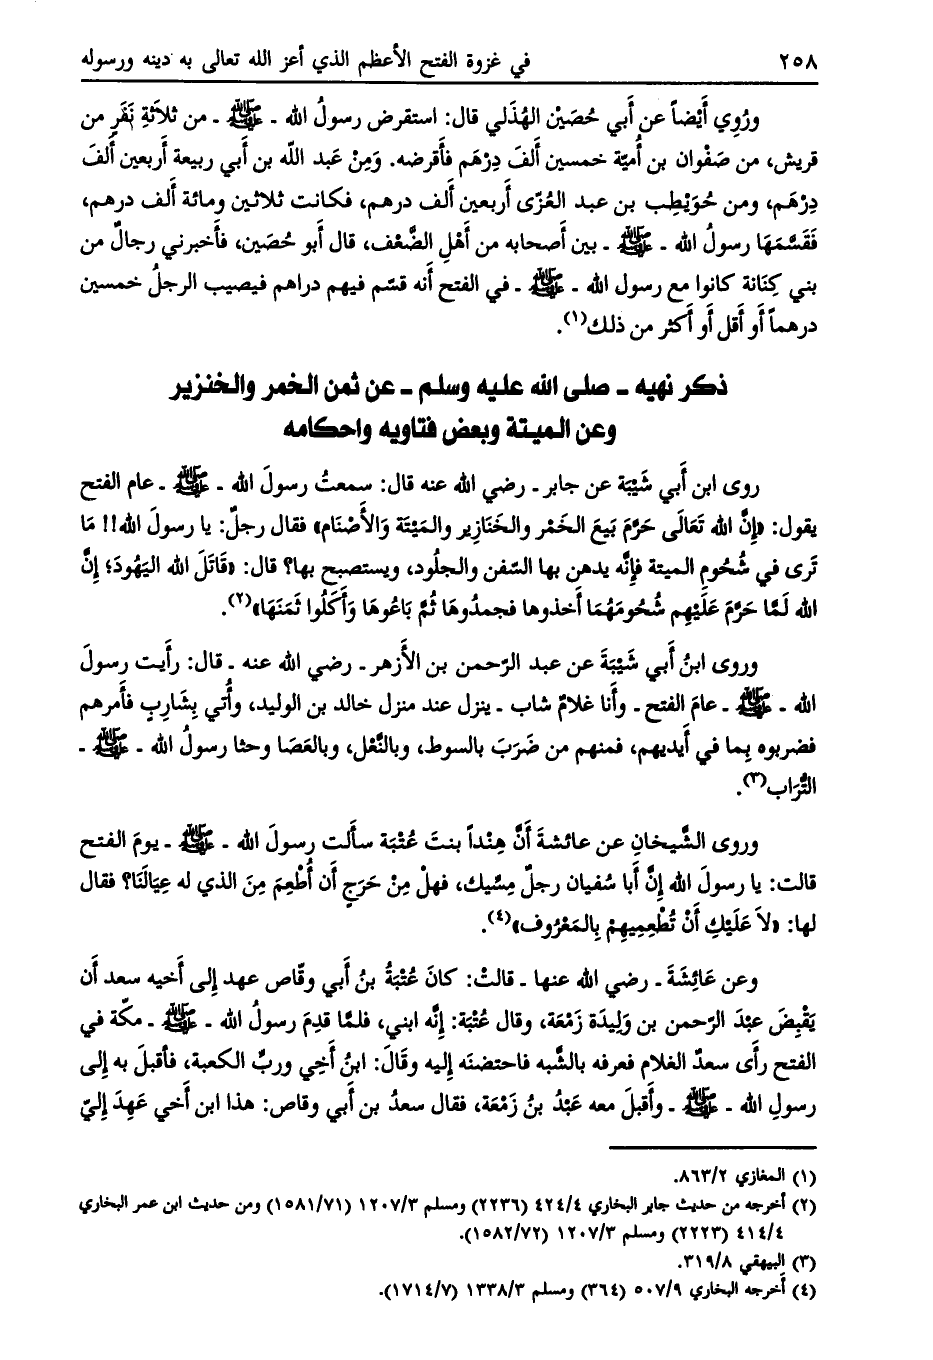 ٢٥٨ في غزوة الفتح الأعظم الذي أعز الله تعالى به دينه ورسوله
ورُوِي أَيْضاً عن أَبي حُصَيْن الهُذَلي قال: استقرض رسولُ الله ـ ﷺ ـ من ثلاَثَةِ نَفَرٍ من
قريش، من صَفْوان بن أُميّة خمسين أَلفَ دِرْهَم فأَقرضه. وَمِنْ عبد اللَّه بن أَبي ربيعة أَربعين أَلفَ
دِرْهَم، ومن حُوَيْطِب بن عبد العُزّى أَربعين أَلف درهم، فكانت ثلاثين ومائة أَلف درهم،
فَقَسَّمَهَا رسولُ الله ـ ﷺ ـ بين أَصحابه من أَهْلِ الضَّعْف، قال أَبو حُصَين، فأَخبرني رجالٌ من
بني كِنَانة كانوا مع رسول الله ـ ﷺ ـ في الفتح أَنه قسّم فيهم دراهم فيصيب الرجلُ خمسين
درهماً أَو أَقل أَو أَكثر من ذلك(١).
ذكر نهيه ـ صلى الله عليه وسلم ـ عن ثمن الخمر والخنزير
وعن الميتة وبعض فتاويه واحكامه
روى ابن أَبي شَيْبَة عن جابر ـ رضي الله عنه قال: سمعتُ رسولَ الله ـ ﷺ ـ عام الفتح
يقول: «إِنَّ الله تَعَالَى حَرَّمَ بَيعَ الخَمْر والخَنَازِير والمَيْتَة وَالأَصْنَام» فقال رجلٌ: يا رسولَ الله!! مَا
تَرى في شُحُومِ الميتة فإِنَّه يدهن بها السّفن والجلُود، ويستصبح بها؟ قال: «قَاتَلَ الله اليَهُودَ؛ إِنَّ
الله لَمَّا حَرَّمَ عَلَيْهِم شُحُومَهُمَا أَخذوها فجمدُوهَا ثُمَّ بَاعُوهَا وَأَكَلُوا ثَمَنَهَا»(٢).
وروى ابنُ أَبي شَيْبَةَ عن عبد الرّحمن بن الأَزهر ـ رضي الله عنه ـ قال: رأَيت رسولَ
الله ـ ﷺ ـ عامَ الفتح ـ وأَنا غلامٌ شاب ـ ينزل عند منزل خالد بن الوليد، وأُتي بِشَارِبٍ فأَمرهم
فضربوه بِما في أَيديهم، فمنهم من ضَرَبَ بالسوط، وبالنَّعْل، وبالعَصَا وحثا رسولُ الله ـ ﷺ ـ
التُّرَاب(٣).
وروى الشَّيخانِ عن عائشةَ أَنَّ هِنْداً بنتَ عُتْبَة سأَلت رسولَ الله ـ ﷺ ـ يومَ الفتح
قالت: يا رسولَ الله إِنَّ أَبا سُفيان رجلٌ مِسِّيك، فهلْ مِنْ حَرَجٍ أَن أُطْعِمَ مِنَ الذي له عِيَالَنَا؟ فقال
لها: «لاَ عَلَيْكِ أَنْ تُطْعِمِيهِمْ بِالمَعْرُوف»(٤).
وعن عَائِشَةَ ـ رضي الله عنها ـ قالتْ: كانَ عُتْبَةُ بنُ أَبي وقّاص عهد إِلى أَخيه سعد أَن
يَقْبِضَ عبْدَ الرّحمن بن وَلِيدَة زَمْعَة، وقال عُتْبَة: إِنَّه ابني، فلمَّا قدِمَ رسولُ الله ـ ﷺ ـ مكّة في
الفتح رأَى سعدٌ الغلام فعرفه بالشَّبه فاحتضنَه إِليه وقَالَ: ابنُ أَخِي وربِّ الكعبة، فأَقبلَ به إِلى
رسولِ الله ـ ﷺ ـ وأَقبلَ معه عَبْدُ بنُ زَمْعَة، فقال سعدُ بن أَبي وقاص: هذا ابن أَخي عَهِدَ إِليّ
(١) المغازي ٨٦٣/٢.
(٢) أخرجه من حديث جابر البخاري ٤٢٤/٤ (٢٢٣٦) ومسلم ١٢٠٧/٣ (١٥٨١/٧١) ومن حديث ابن عمر البخاري
٤١٤/٤ (٢٢٢٣) ومسلم ١٢٠٧/٣ (١٥٨٢/٧٢).
(٣) البيهقي ٣١٩/٨.
(٤) أخرجه البخاري ٥٠٧/٩ (٣٦٤) ومسلم ١٣٣٨/٣ (١٧١٤/٧).